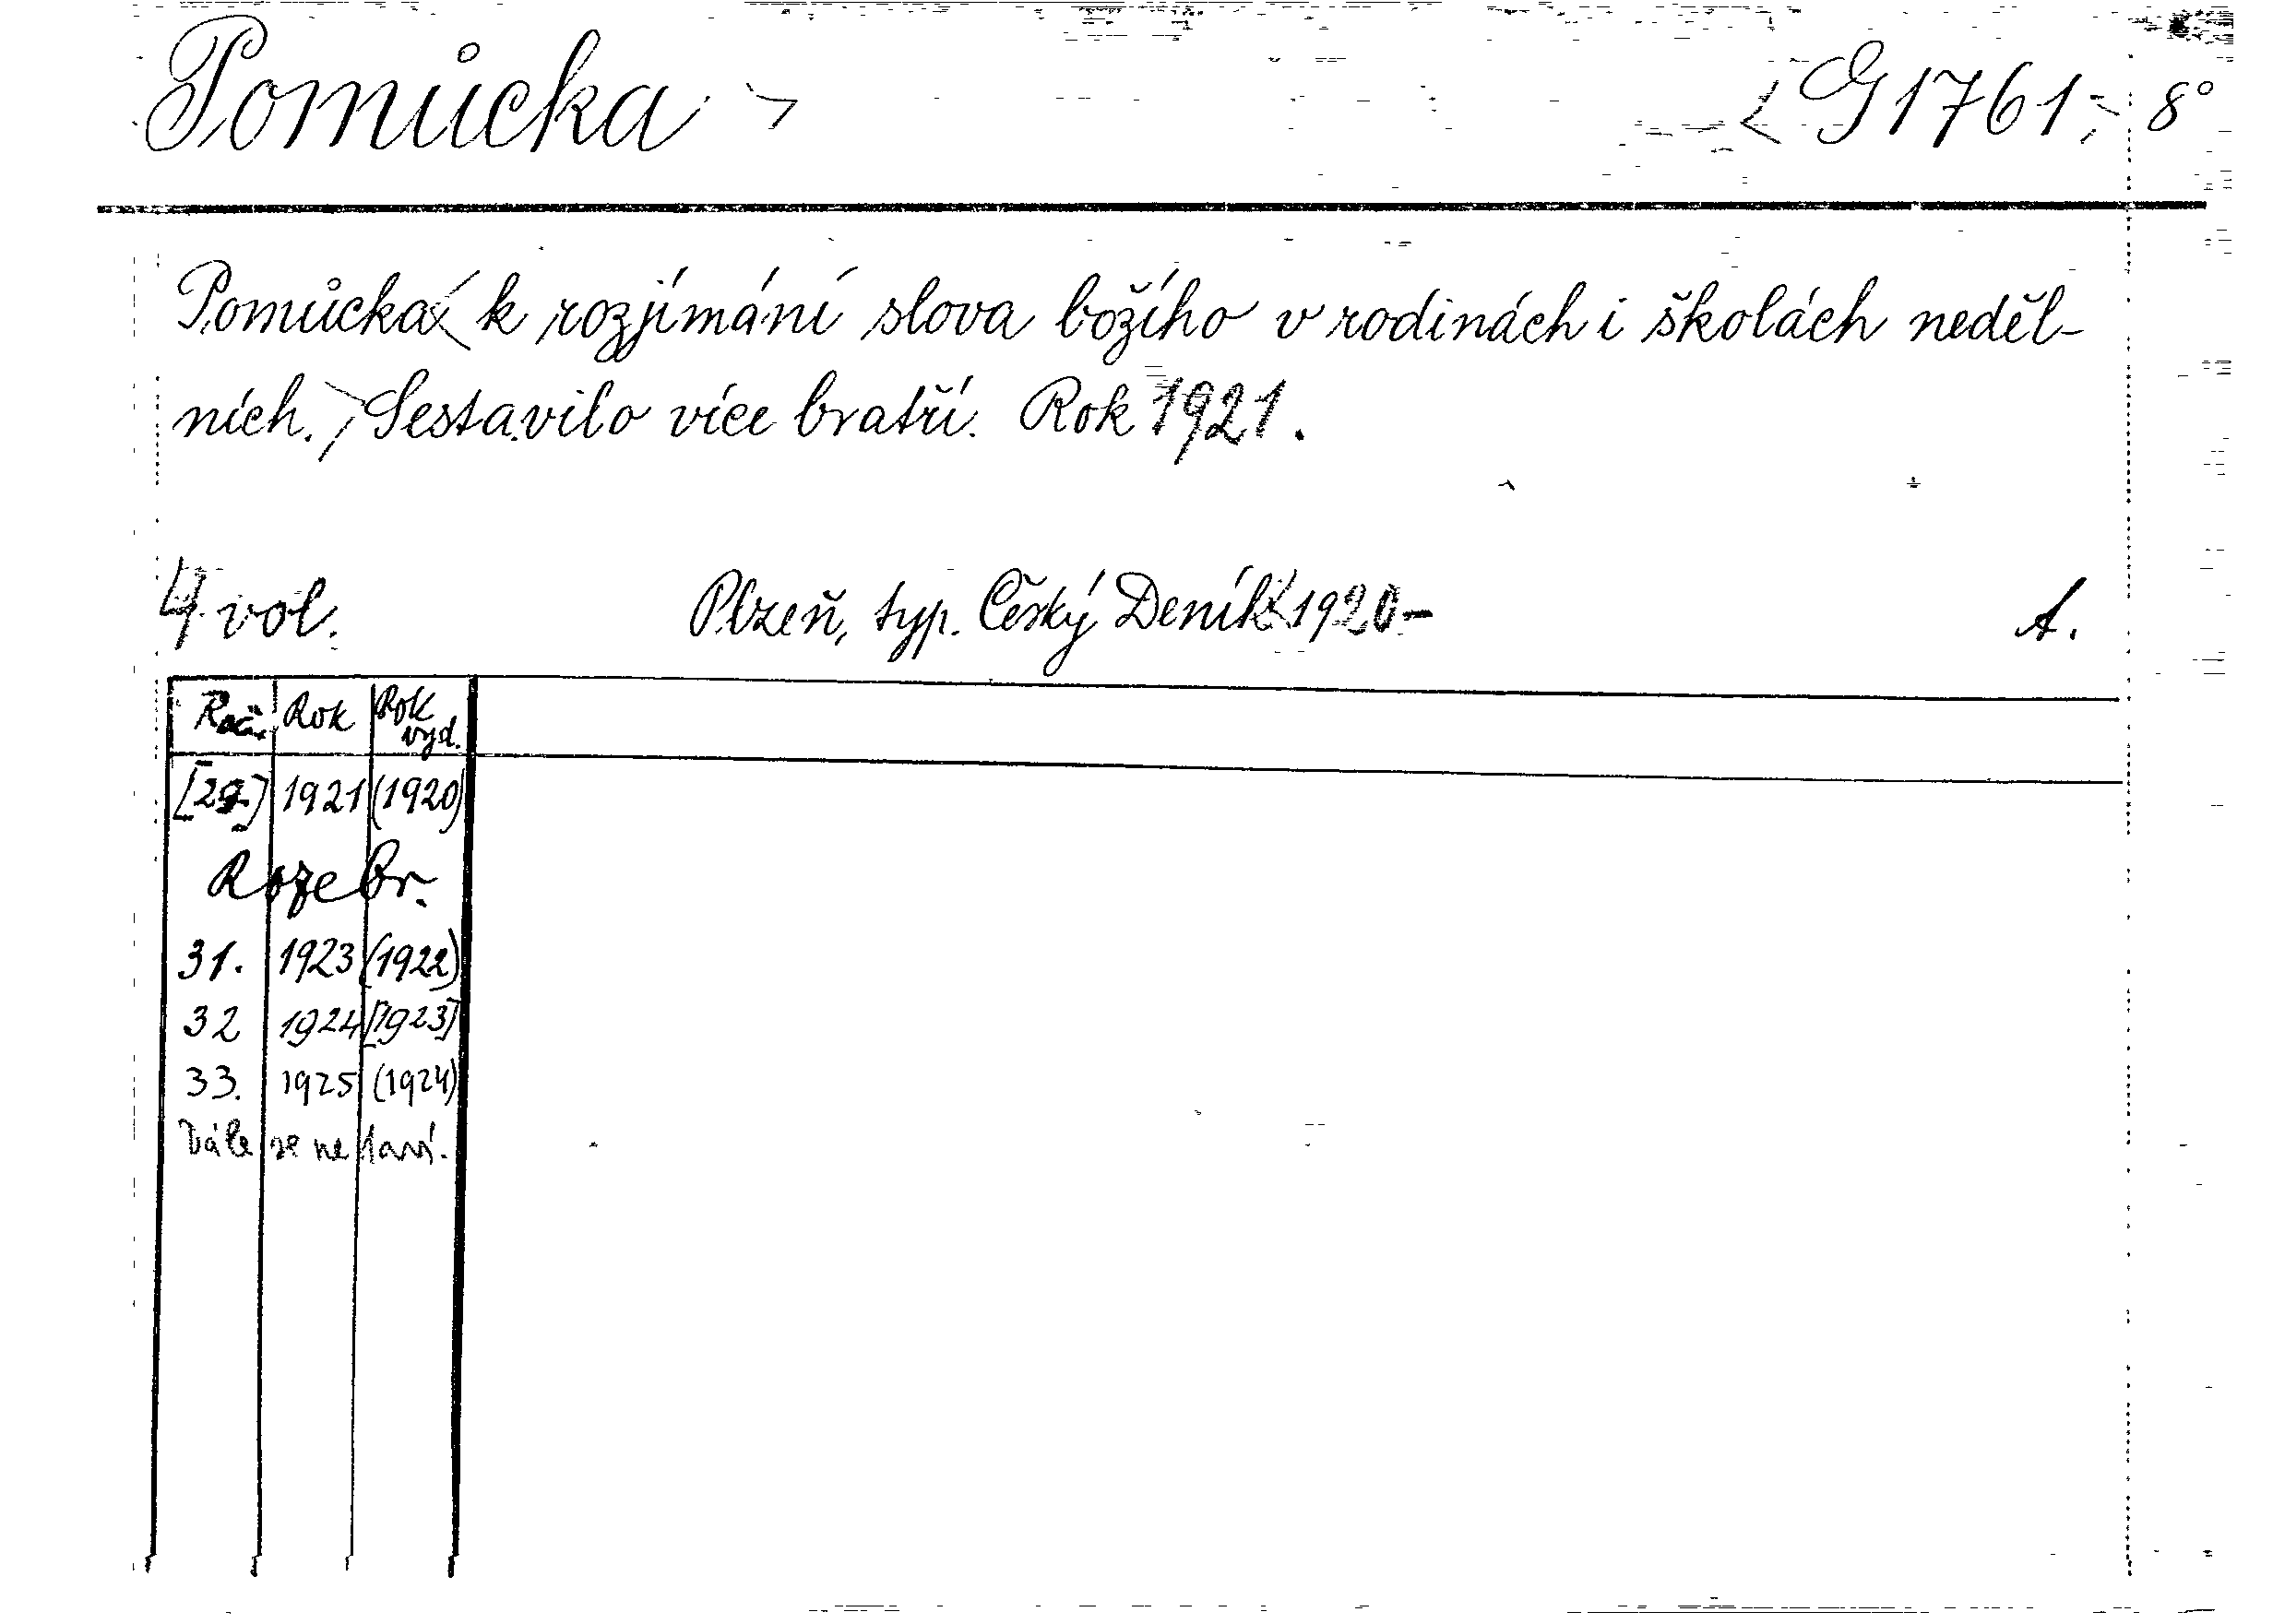 Pomůcka > < G 1761.- 8°
Pomůcka < k rozjímání slova božího v rodinách i školách neděl-
ních. > Sestavilo více bratří. Rok 1921.
4 vol. Plzeň, typ. Český Deník < 1920- A.
Roč. Rok Rok vyd.
[29.] 1921 (1920)
Rozebr.
31. 1923 (1922)
32 1924 [1923]
33. 1925 (1924)
Dále se